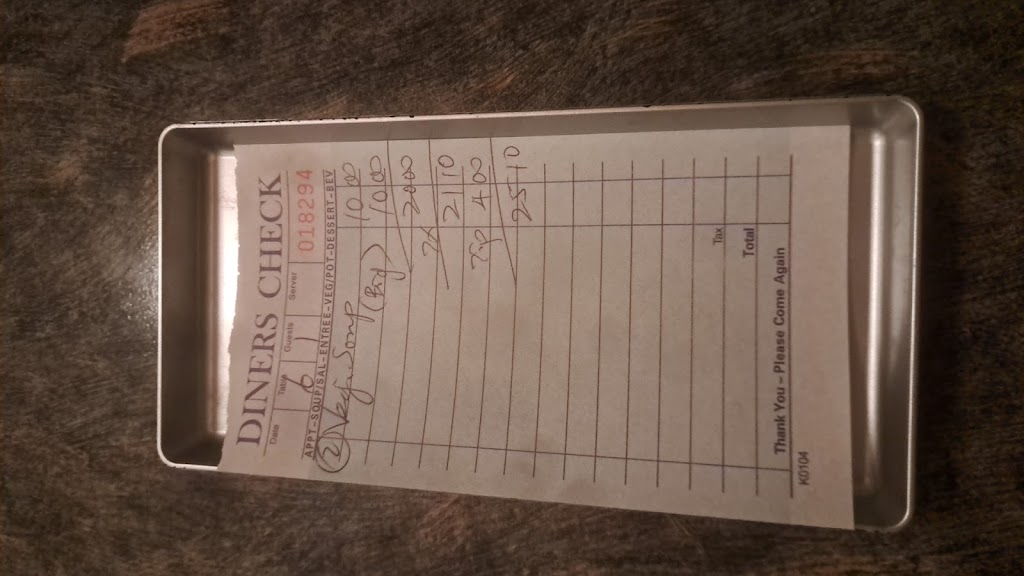 DINERS CHECK
Date Table Guests Server
6 1 018294
APPT-SOUP/SAL-ENTREE-VEG/POT-DESSERT-BEV
2 Soup 10 00
(Big) 10 00
20 00
21 10
4 00
25 10
Tax
Total
Thank You - Please Come Again
K0104